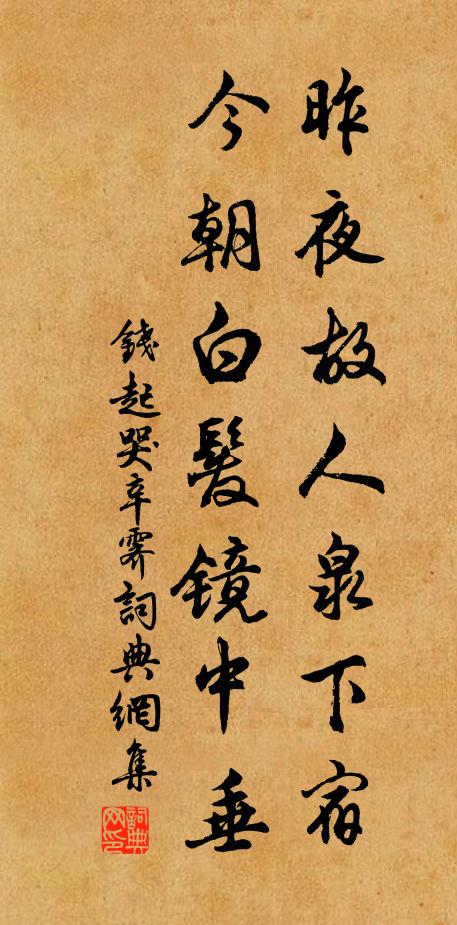 昨夜故人泉下宿
今朝白髮鏡中垂
錢起哭辛霁詞典網集
詞典网印